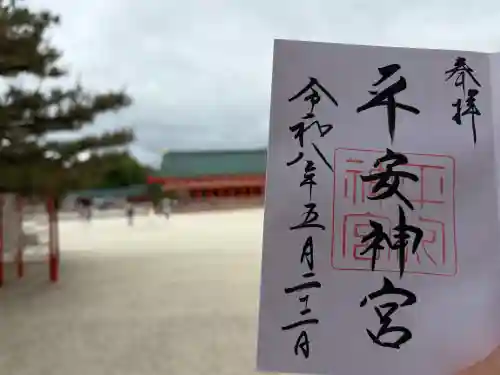 奉拝
平安神宮
令和八年五月二十二日